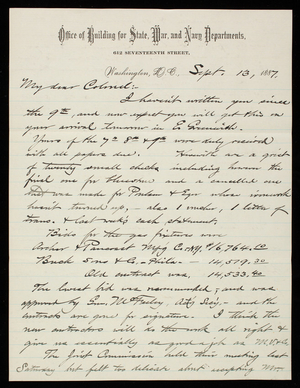 Office of Building for State, War, and Navy Departments,
612 SEVENTEENTH STREET,
Washington, D.C. Sept. 13, 1887.
My dear Colonel:-
I haven't written you since
the 9th, and now expect you will get this on
your arrival tomorrow in
Yours of the 7th 8th & 9th were duly received
with all papers due. Herewith are a grist
of twenty small checks including however the
first one for Thissom and a cancelled one
that was made for Poulson & Eger whose ironwork
hasn't turned up, - also 1 under 1 letter of
trans. & last week's cash statement.
Bids for the gas fixtures were
Archer & Pancoast Mfg Co. N.Y. $16,764.00
Buck Sons & Co. - Phila - 14,579.30
Old contract was, 14,533.40
The lowest bid was recommended; and was
approved by Gen. McFeeley Actg Secy. - and the
contracts are gone for signature. I think the
new contractors will do the work all right &
give us essentially as good a job as
The Joint Commission held their meeting last
Saturday but felt too delicate about accepting